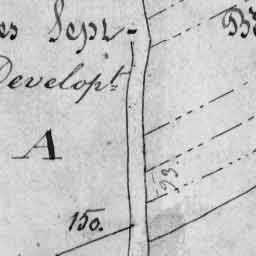 es Sept
Developt
A
93
150.